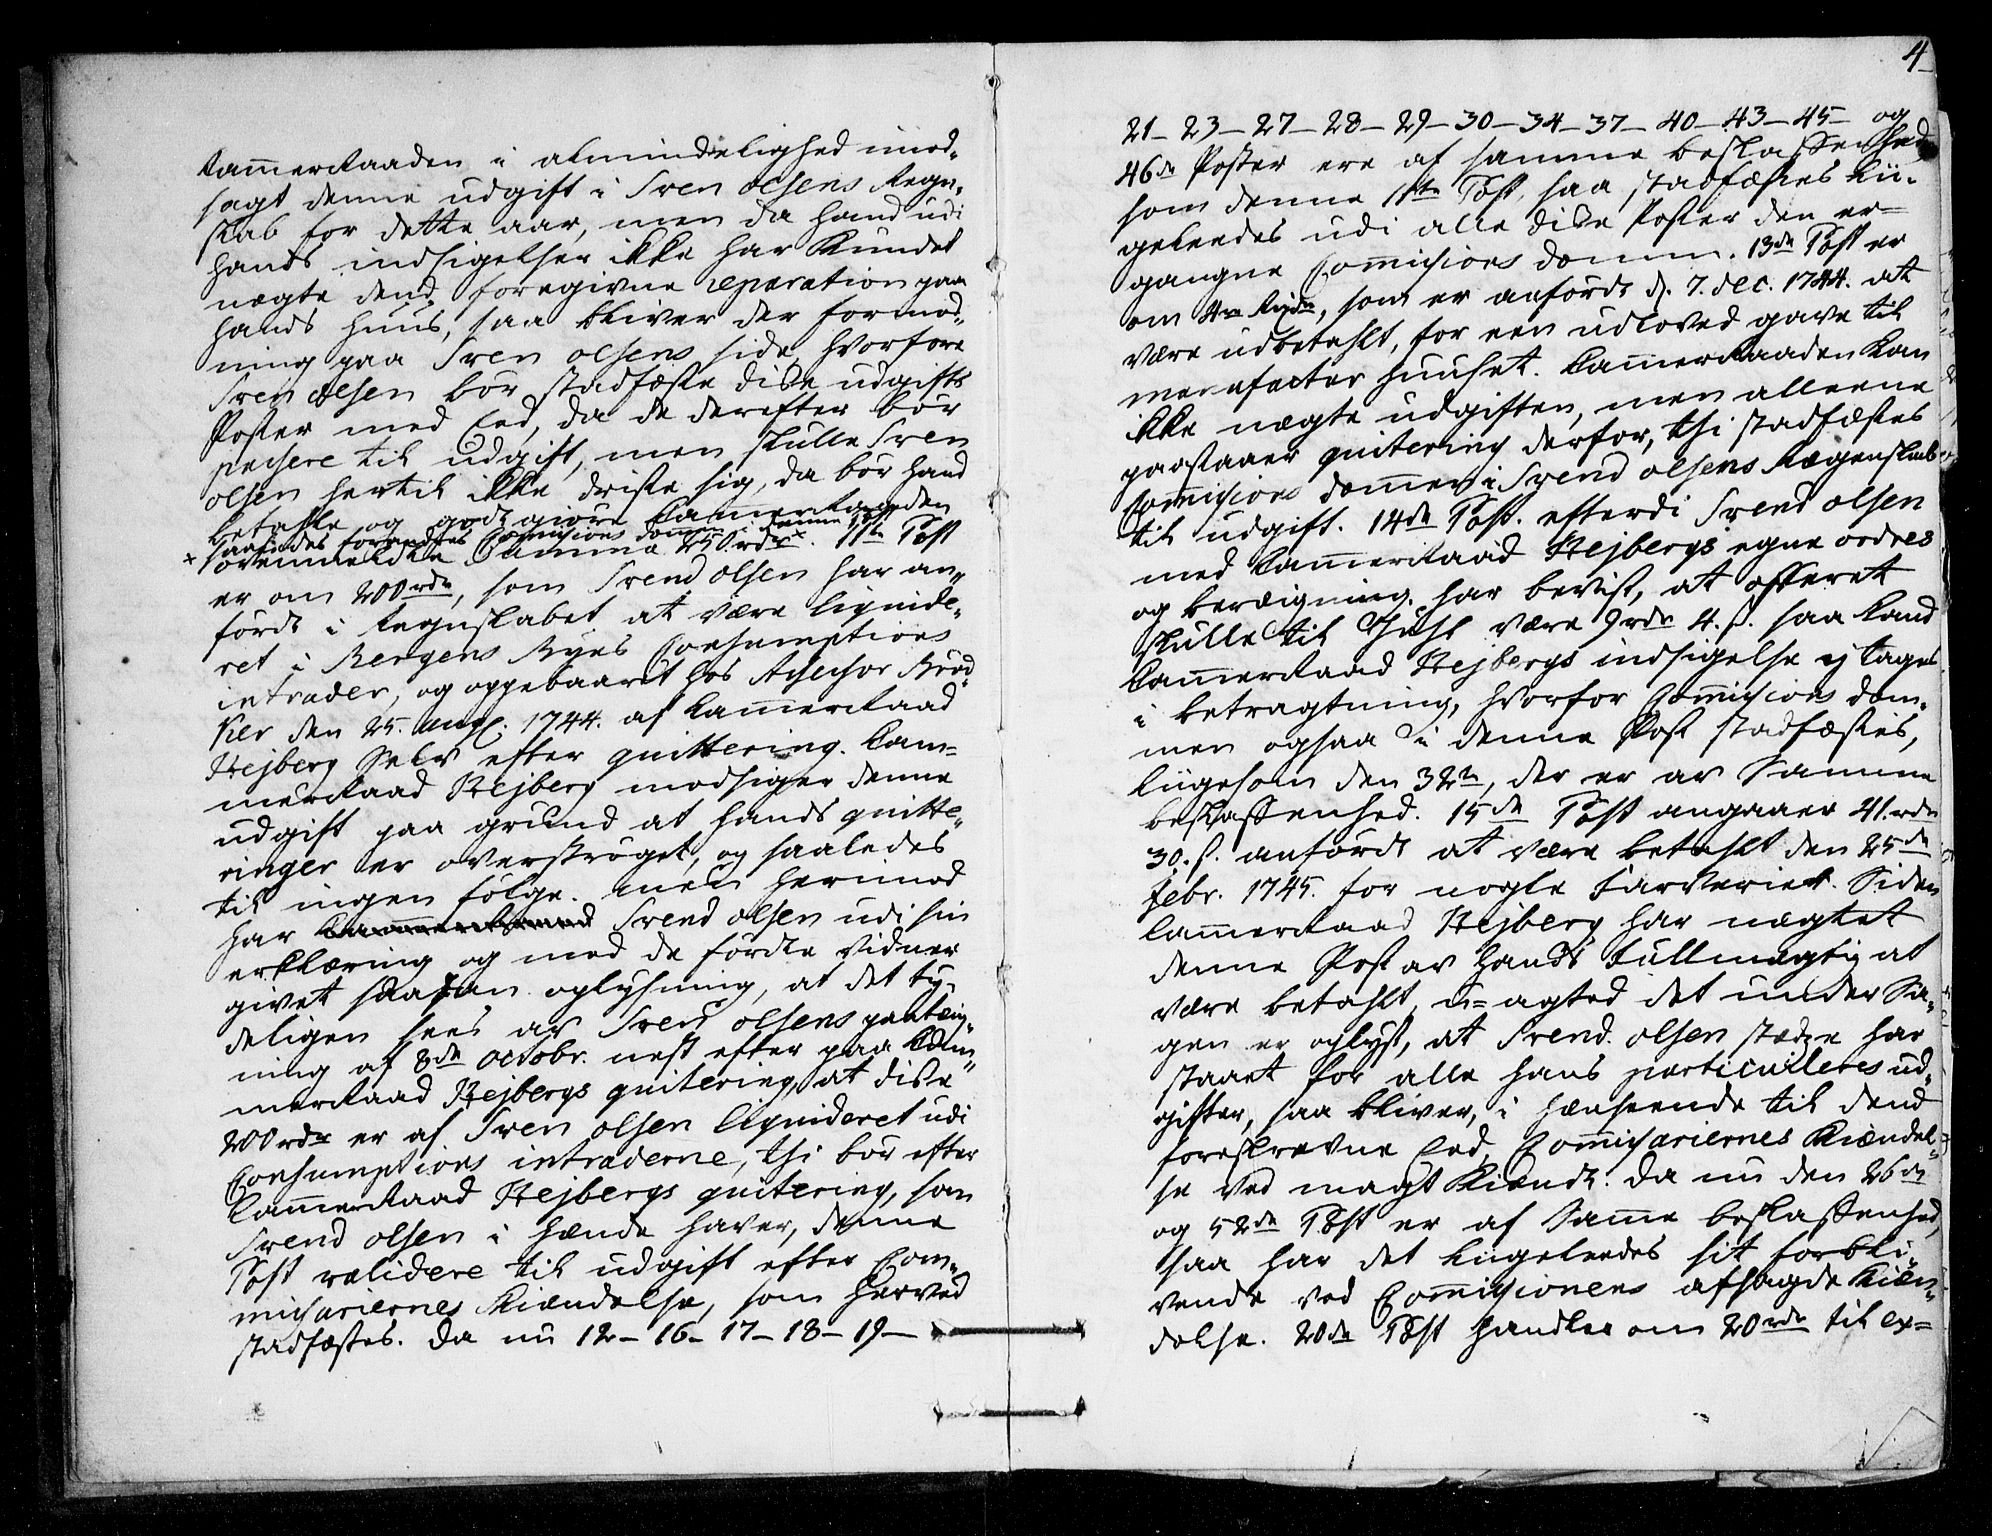 Cam̅erRaaden i almindelighed imod-
sagt denne udgift i Sven olsens Regn-
skab for dette aar, men da hand udi
hands indsigelser ikke har kundet
nægte dend foregivne reparation paa
hands huus, saa bliver der formod-
ning paa Sven olsens side, hvorfore
Sven olsen bør stadfæste disse udgifts
Poster med Eed, da de derefter bør
passere til udgift, men skulle Sven
olsen hertil ikke driste sig, da bør hand
betahle og godtgiøre Cam̅erRaaden
× saaledes forandres Com̅isions dom̅en i denne Post
ovenmeldte Summa 250 rdr ×. 11te Post
er om 200 rdr, som Svend olsen har an-
ført i Regnskabet at være liqvide-
ret i Bergens Byes Consumptions
intrader, og oppebaaret hos Assessor Brød-
ker den 25. aug. 1744. af Cam̅erRaad
Hejberg Selv efter quittering. Cam-
merRaad Hejberg modsiger denne
udgift paa grund at hands quitte-
ringer er overstrøget, og saaledes
til ingen følge. men herimod
har Svend olsen udi sin
erklæring og med de førdte vidner
givet saadan oplysning, at det ty-
deligen sees av Sven olsens paateig-
ning af 8de octobr. nest efter paa Cam-
merRaad Hejbergs quitering, at disse
200 rdr er af Sven olsen liqvideret udi
Consumptions intraderne, thi bør efter
Cam̅erRaad Hejbergs quitering, som
Svend olsen i hænde haver, denne
Post validere til udgift efter Com-
missariernes kiendelse, som herved
stadfæstes. Da nu 12 - 16 - 17 - 18 - 19 -
4
21 - 23 - 27 - 28 - 29 - 30 - 34 - 37 - 40 - 43 - 45 - og
46de Poster ere af samme beskaffenhed,
som denne 11te Post, saa stadfæstes lii-
geleedes udi alle disse Poster den er-
gangne Com̅isions domm. 13de Post er
om 4re Rixdr, som er anførdt d. 7. dec. 1744. at
være udbetahlt, for een udloved gave til
manufactur huuset. Cam̅erRaaden kan
ikke nægte udgiften, men alleene
paastaaer quitering derfor, thi stadfæstes
Com̅isions dom̅en i Svend olsens Regenskab
til udgift. 14de Post. efterdi Svend olsen
med Cam̅erRaad Hejbergs egne ordres
og beregning har bevist, at offeret
skulle til Juhl være 9 rdr 4. s. saa kand
Cam̅erRaad Hejbergs indsigelse ej tages
i betragtning, hvorfor Com̅isions dom-
men ogsaa i denne Post stadfæstes,
liigesom den 32te, der er av Samme
beskaffenhed. 15de Post angaaer 41. rdr
30. s. anførdt at være betahlt den 25de
febr. 1745. for nogle farverier. Siden
Cam̅erRaad Hejberg har nægtet
denne Post av hands fullmægtig at
være betahlt, u-agted det under Sa-
gen er oplyst, at Svend olsen stædze har
staaet for alle hans particulleres ud-
gifter, saa bliver, i hænseende til dend
foreskrevne Eed, Com̅issariernes kiændel-
se ved magt kiændt. Da nu den 26de
og 52de Post er af Sam̅e beskaffenhed,
saa har det liigeleedes sit forbli-
vende ved Com̅issionens afsagde kiæn-
delse. 20de Post handler om 20 rdr til ex-